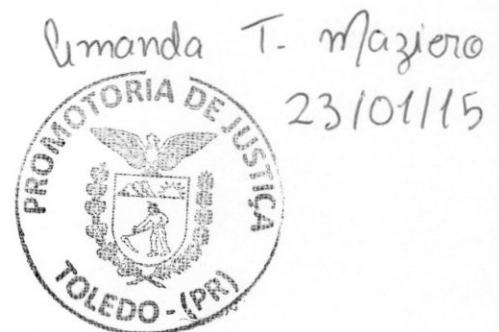 Amanda T. Maziero
23/01/15
PROMOTORIA DE JUSTIÇA
TOLEDO - (PR)